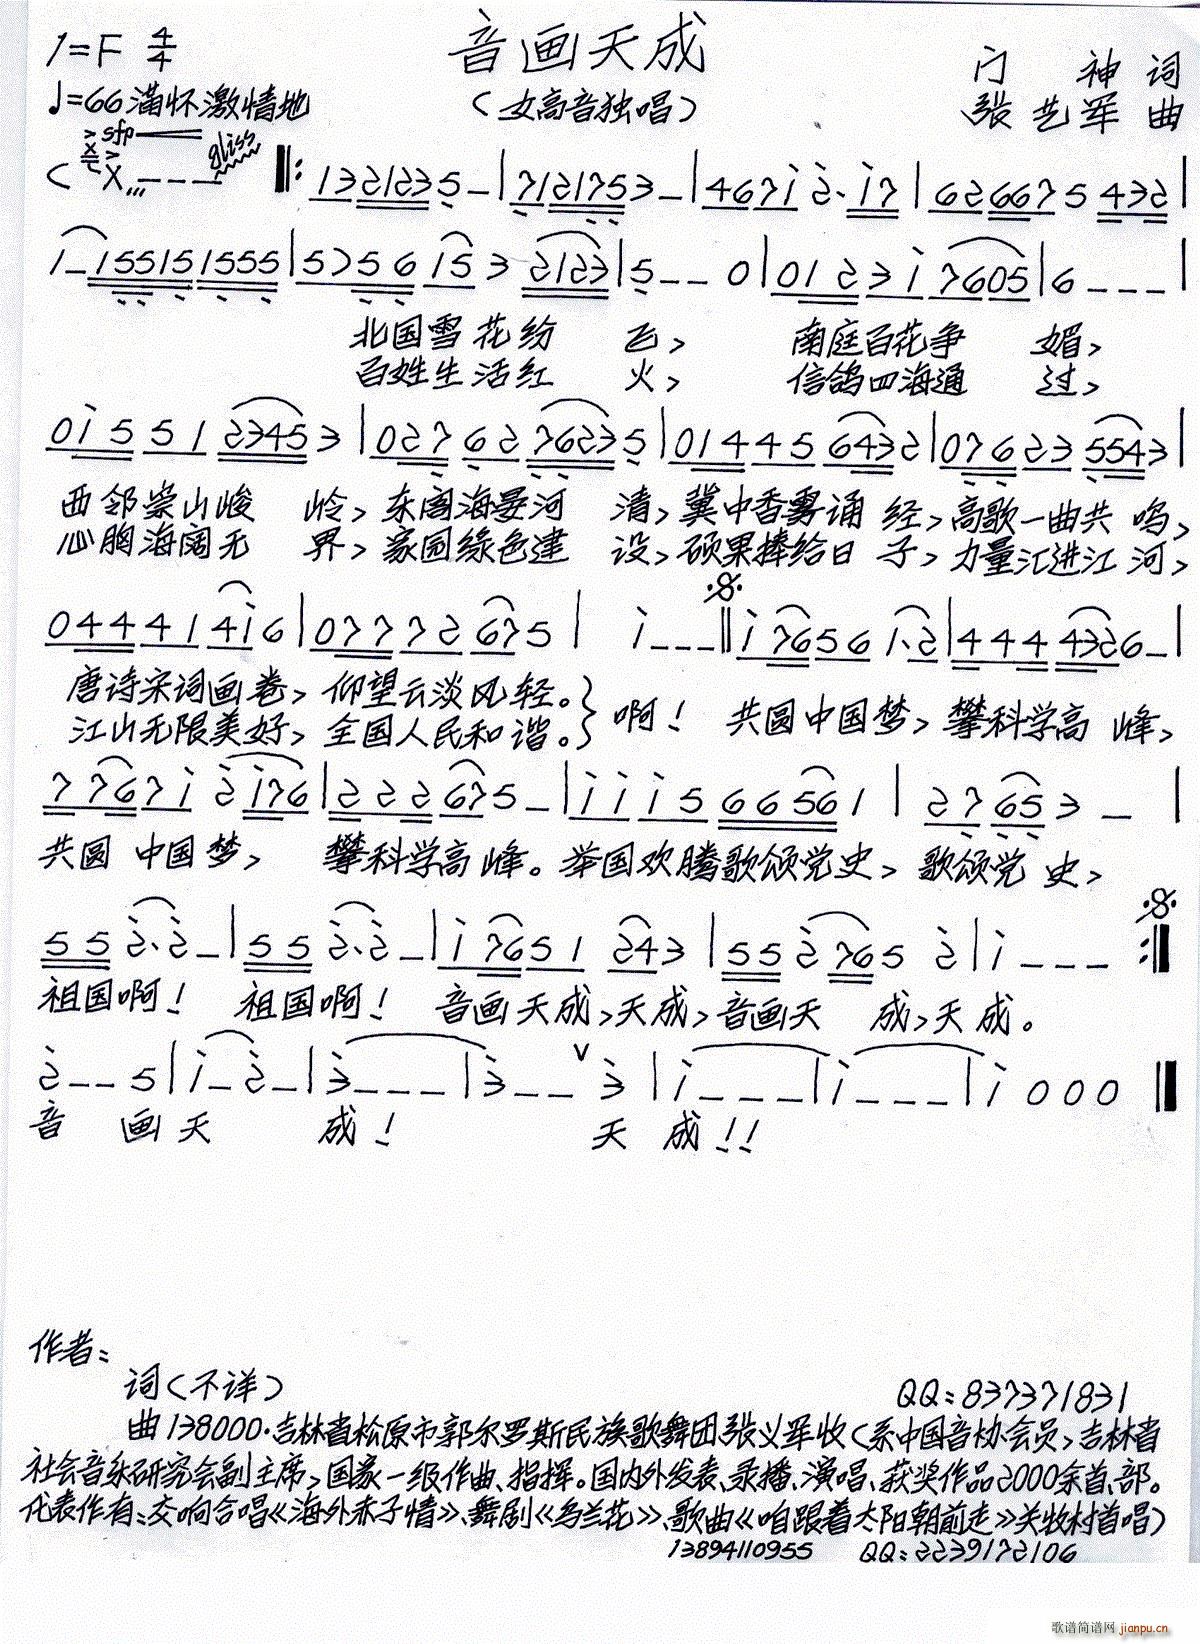 1=F 4/4
音画天成
门 神 词
♩=66 满怀激情地
(女高音独唱)
张艺军 曲
sfp
gliss
132123 5 – | 712175 3 – | 467i 2· i7 | 626675 432 |
1 – i55151555 | 5756 i5 3 2123 | 5 – – 0 | 01 23 i 7605 | 6 – – – |
北国雪花纷 飞, 南庭百花争 媚,
百姓生活红 火, 信鸽四海通 过,
0i5 51 2345 3 | 027 62 7623 5 | 014 45 643 2 | 076 23 554 3 |
西邻崇山峻 岭, 东阁海晏河 清, 冀中香雾诵 经, 高歌一曲共 鸣,
心胸海阔无 界, 家园绿色建 设, 硕果捧给日 子, 力量汇进江 河,
044 41 4i 6 | 077 72 67 5 | i – – – ‖ i 765 6 1·2 | 444 432 6 – |
唐诗宋词画 卷, 仰望云淡风轻。} 啊! 共圆中国梦, 攀科学高 峰,
江山无限美好, 全国人民和 谐。
7 767 i 2 i76 | 22267 5 – | i i i 5 6656 1 | 27 65 3 – |
共圆 中国梦, 攀科学高峰。举国欢腾歌颂党史, 歌颂党 史,
55 2·2 – | 55 2·2 – | i 7651 24 3 | 55 2 765 2 | i – – – :‖
祖国啊! 祖国啊! 音画天成,天成,音画天 成,天成。
2 – – 5 | i – 2 – | 3 – – – | 3 – – 3 | i – – – | i – – – | i 0 0 0 ‖
音 画天 成! 天 成!!
作者:
词(不详)
QQ:837371831
曲138000·吉林省松原市郭尔罗斯民族歌舞团张义军收(系中国音协会员,吉林省
社会音乐研究会副主席,国家一级作曲、指挥。国内外发表、录播、演唱、获奖作品2000余首、部。
代表作有:交响合唱《海外赤子情》、舞剧《乌兰花》、歌曲《咱跟着太阳朝前走》关牧村首唱)
13894110955 QQ:2239172106
歌谱简谱网 jianpu.cn